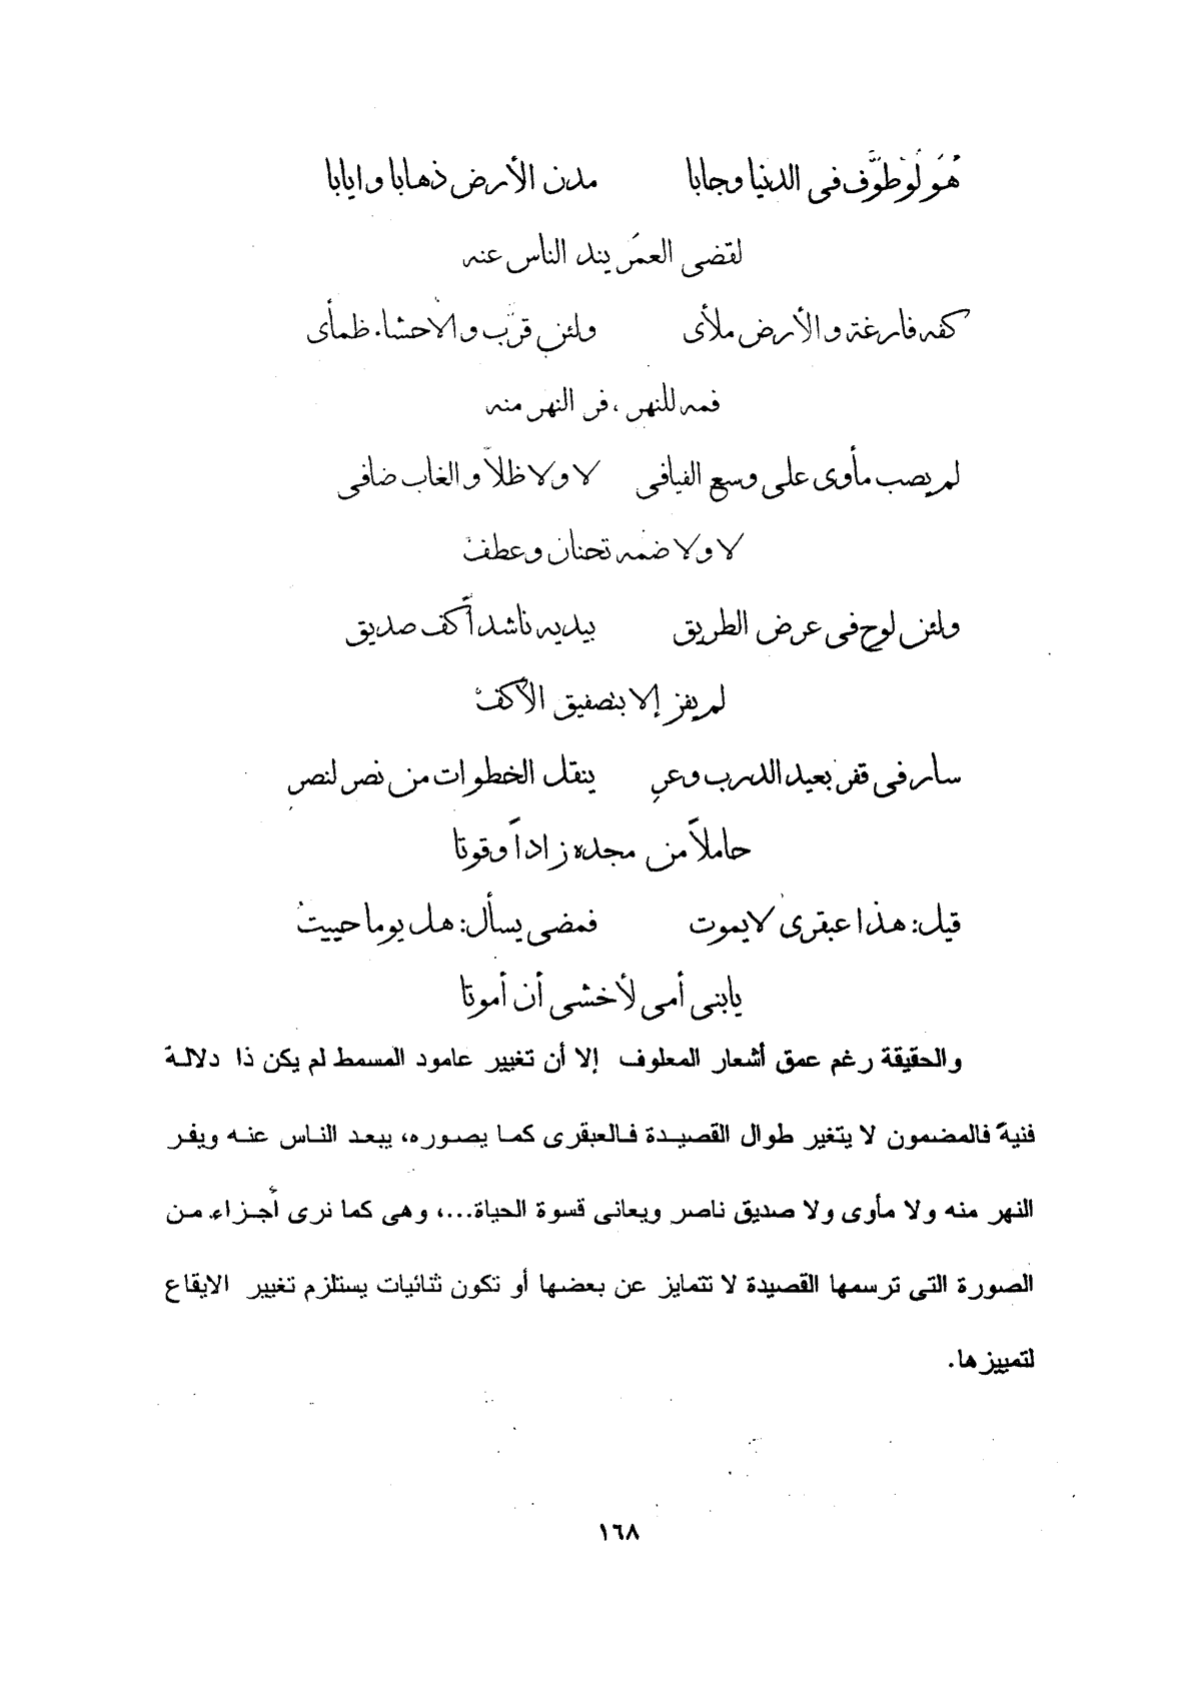 هُوَ لَوْ طوَّف فى الدنيا وجابا مدن الأرض ذهابا وايابا
لقضى العمرَ يند الناس عنه
كفه فارغة والأرض ملأى ولئن قرّب والأحشاء ظمأى
فمه للنهر ، فر النهر منه
لم يصب مأوى على وسع الفيافى لا ولا ظلاً والغاب ضافى
لا ولا ضمه تحنان وعطفْ
ولئن لوح فى عرض الطريق بيديه ناشداً كف صديق
لم يفز إلا بتصفيق الأكفْ
سار فى قفر بعيد الدرب وعرِ ينقل الخطوات من نصر لنصرِ
حاملاً من مجده زاداً وقوتا
قيل: هذا عبقرى لا يموت فمضى يسأل: هل يوما حييتُ
يابنى أمى لأخشى أن أموتا
والحقيقة رغم عمق أشعار المعلوف إلا أن تغيير عامود المسمط لم يكن ذا دلالة
فنية فالمضمون لا يتغير طوال القصيدة فالعبقرى كما يصوره، يبعد الناس عنه ويفر
النهر منه ولا مأوى ولا صديق ناصر ويعانى قسوة الحياة...، وهى كما نرى أجزاء من
الصورة التى ترسمها القصيدة لا تتمايز عن بعضها أو تكون ثنائيات يستلزم تغيير الايقاع
لتمييزها.
١٦٨